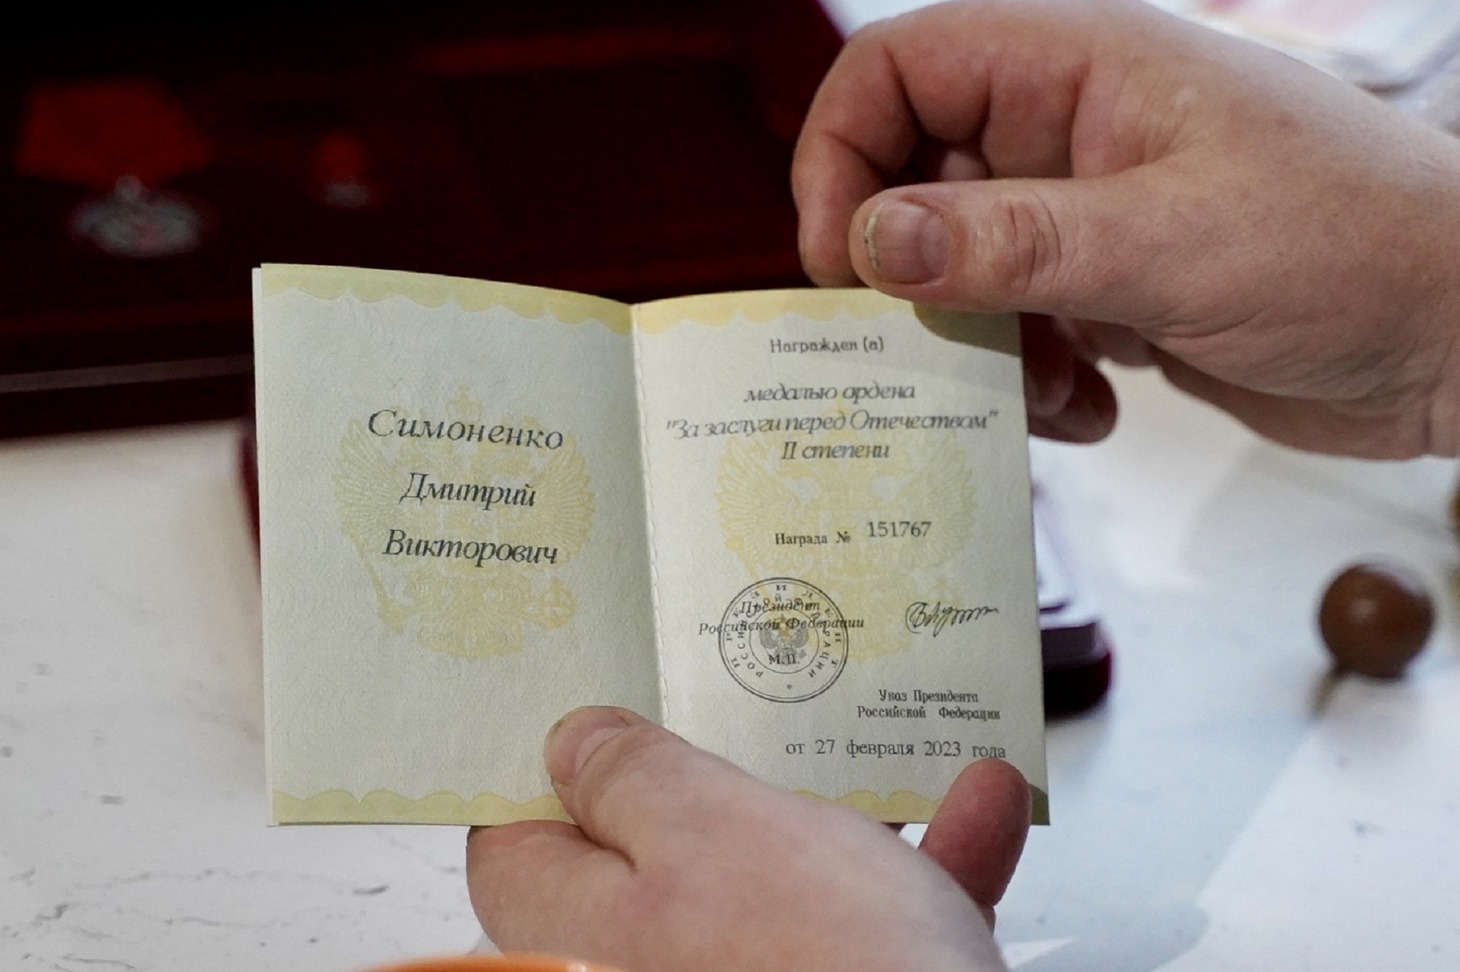 Симоненко
Дмитрий
Викторович
Награжден (а)
медалью ордена
"За заслуги перед Отечеством"
II степени
Награда № 151767
Президент
Российской Федерации
М.П.
Указ Президента
Российской Федерации
от 27 февраля 2023 года